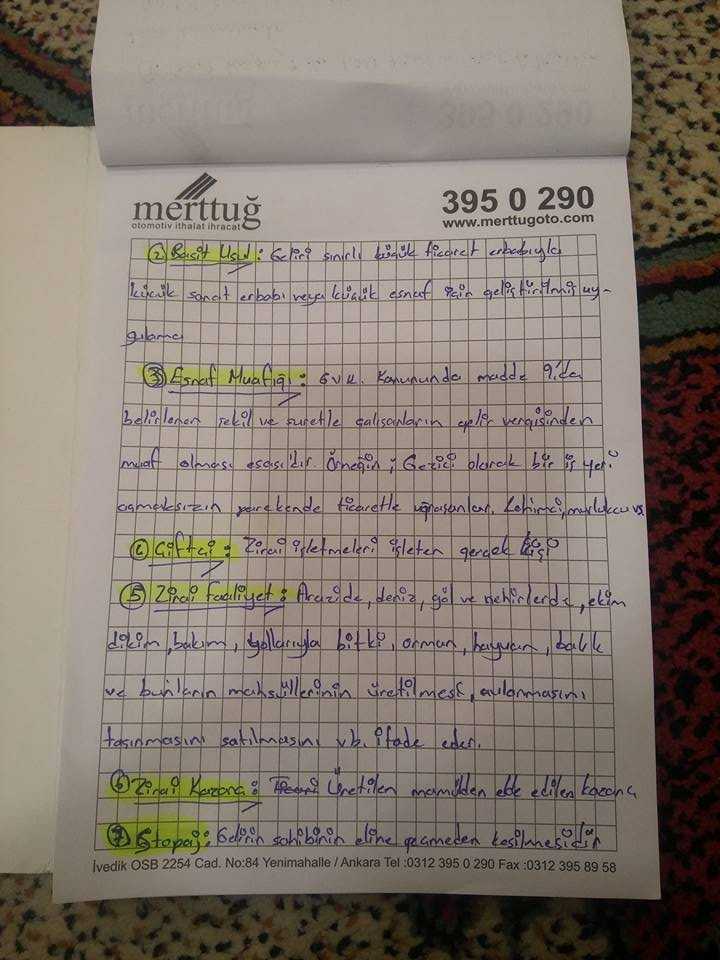 merttuğ
otomotiv ithalat ihracat
395 0 290
www.merttugoto.com
② Basit Usul : Geliri sınırlı küçük ticaret erbabıyla
küçük sanat erbabı veya küçük esnaf için geliştirilmiş uy-
gulama
③ Esnaf Muaflığı : G.V.K. Kanununda madde 9'da
belirlenen şekil ve suretle çalışanların gelir vergisinden
muaf olması esasıdır. Örneğin ; Gezici olarak bir iş yeri
açmaksızın perakende ticaretle uğraşanlar. Lehimci, muslukçu vs
④ Çiftçi : Zirai işletmeleri işleten gerçek kişi
⑤ Zirai faaliyet : Arazide, deniz, göl ve nehirlerde, ekim
dikim, bakım, yollarıyla bitki, orman, hayvan, balık
ve bunların mahsüllerinin üretilmesi, avlanmasını
taşınmasını satılmasını vb. ifade eder.
⑥ Zirai Kazanç : Üretilen mamülden elde edilen kazanç
⑦ Stopaj : Gelirin sahibinin eline geçmeden kesilmesidir
İvedik OSB 2254 Cad. No:84 Yenimahalle / Ankara Tel :0312 395 0 290 Fax :0312 395 89 58